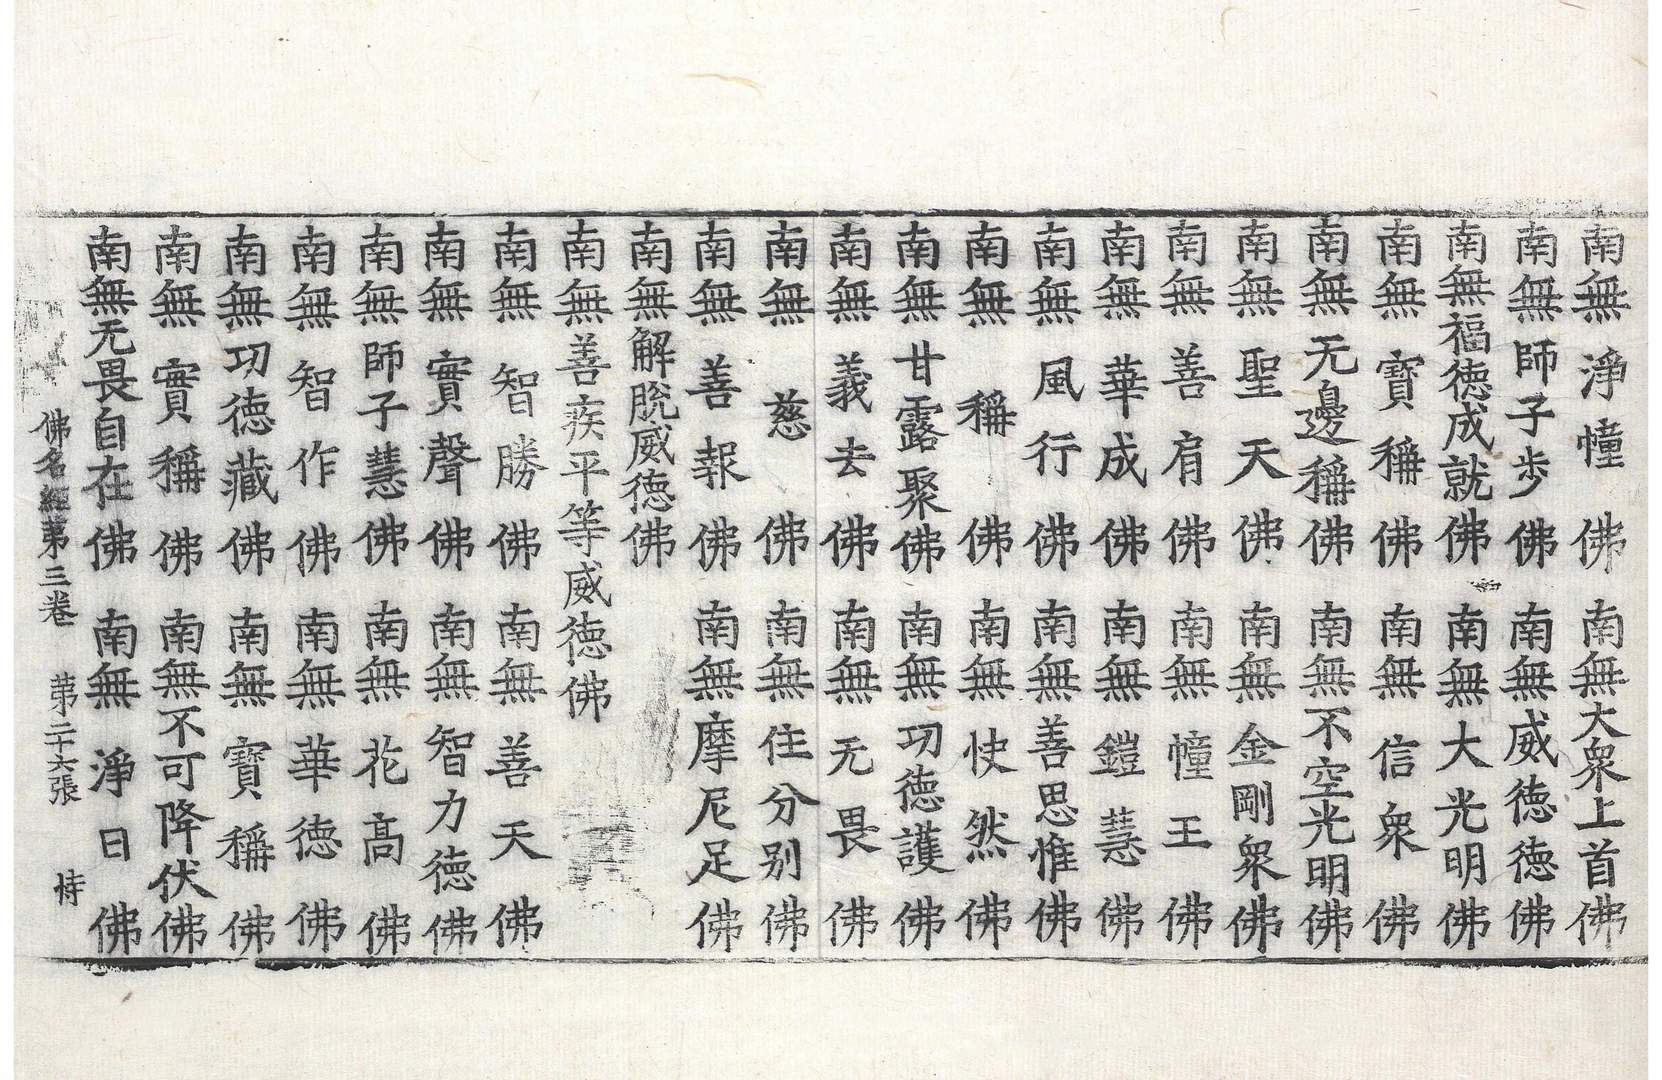 南無淨憧佛　南無大衆上首佛
南無師子步佛　南無威徳徳佛
南無福徳成就佛　南無大光明佛
南無寶稱佛　南無信衆佛
南無无邊稱佛　南無不空光明佛
南無聖天佛　南無金剛衆佛
南無善肩佛　南無憧王佛
南無華成佛　南無鎧慧佛
南無風行佛　南無善思惟佛
南無稱佛　南無快然佛
南無甘露聚佛　南無功徳護佛
南無義去佛　南無无畏佛
南無慈佛　南無住分别佛
南無善報佛　南無摩尼足佛
南無解脫威徳佛
南無善疾平等威徳佛
南無智勝佛　南無善天佛
南無實聲佛　南無智力徳佛
南無師子慧佛　南無花高佛
南無智作佛　南無華徳佛
南無功徳藏佛　南無寶稱佛
南無實稱佛　南無不可降伏佛
南無无畏自在佛　南無淨日佛
佛名經苐三卷　苐二十六張　恃